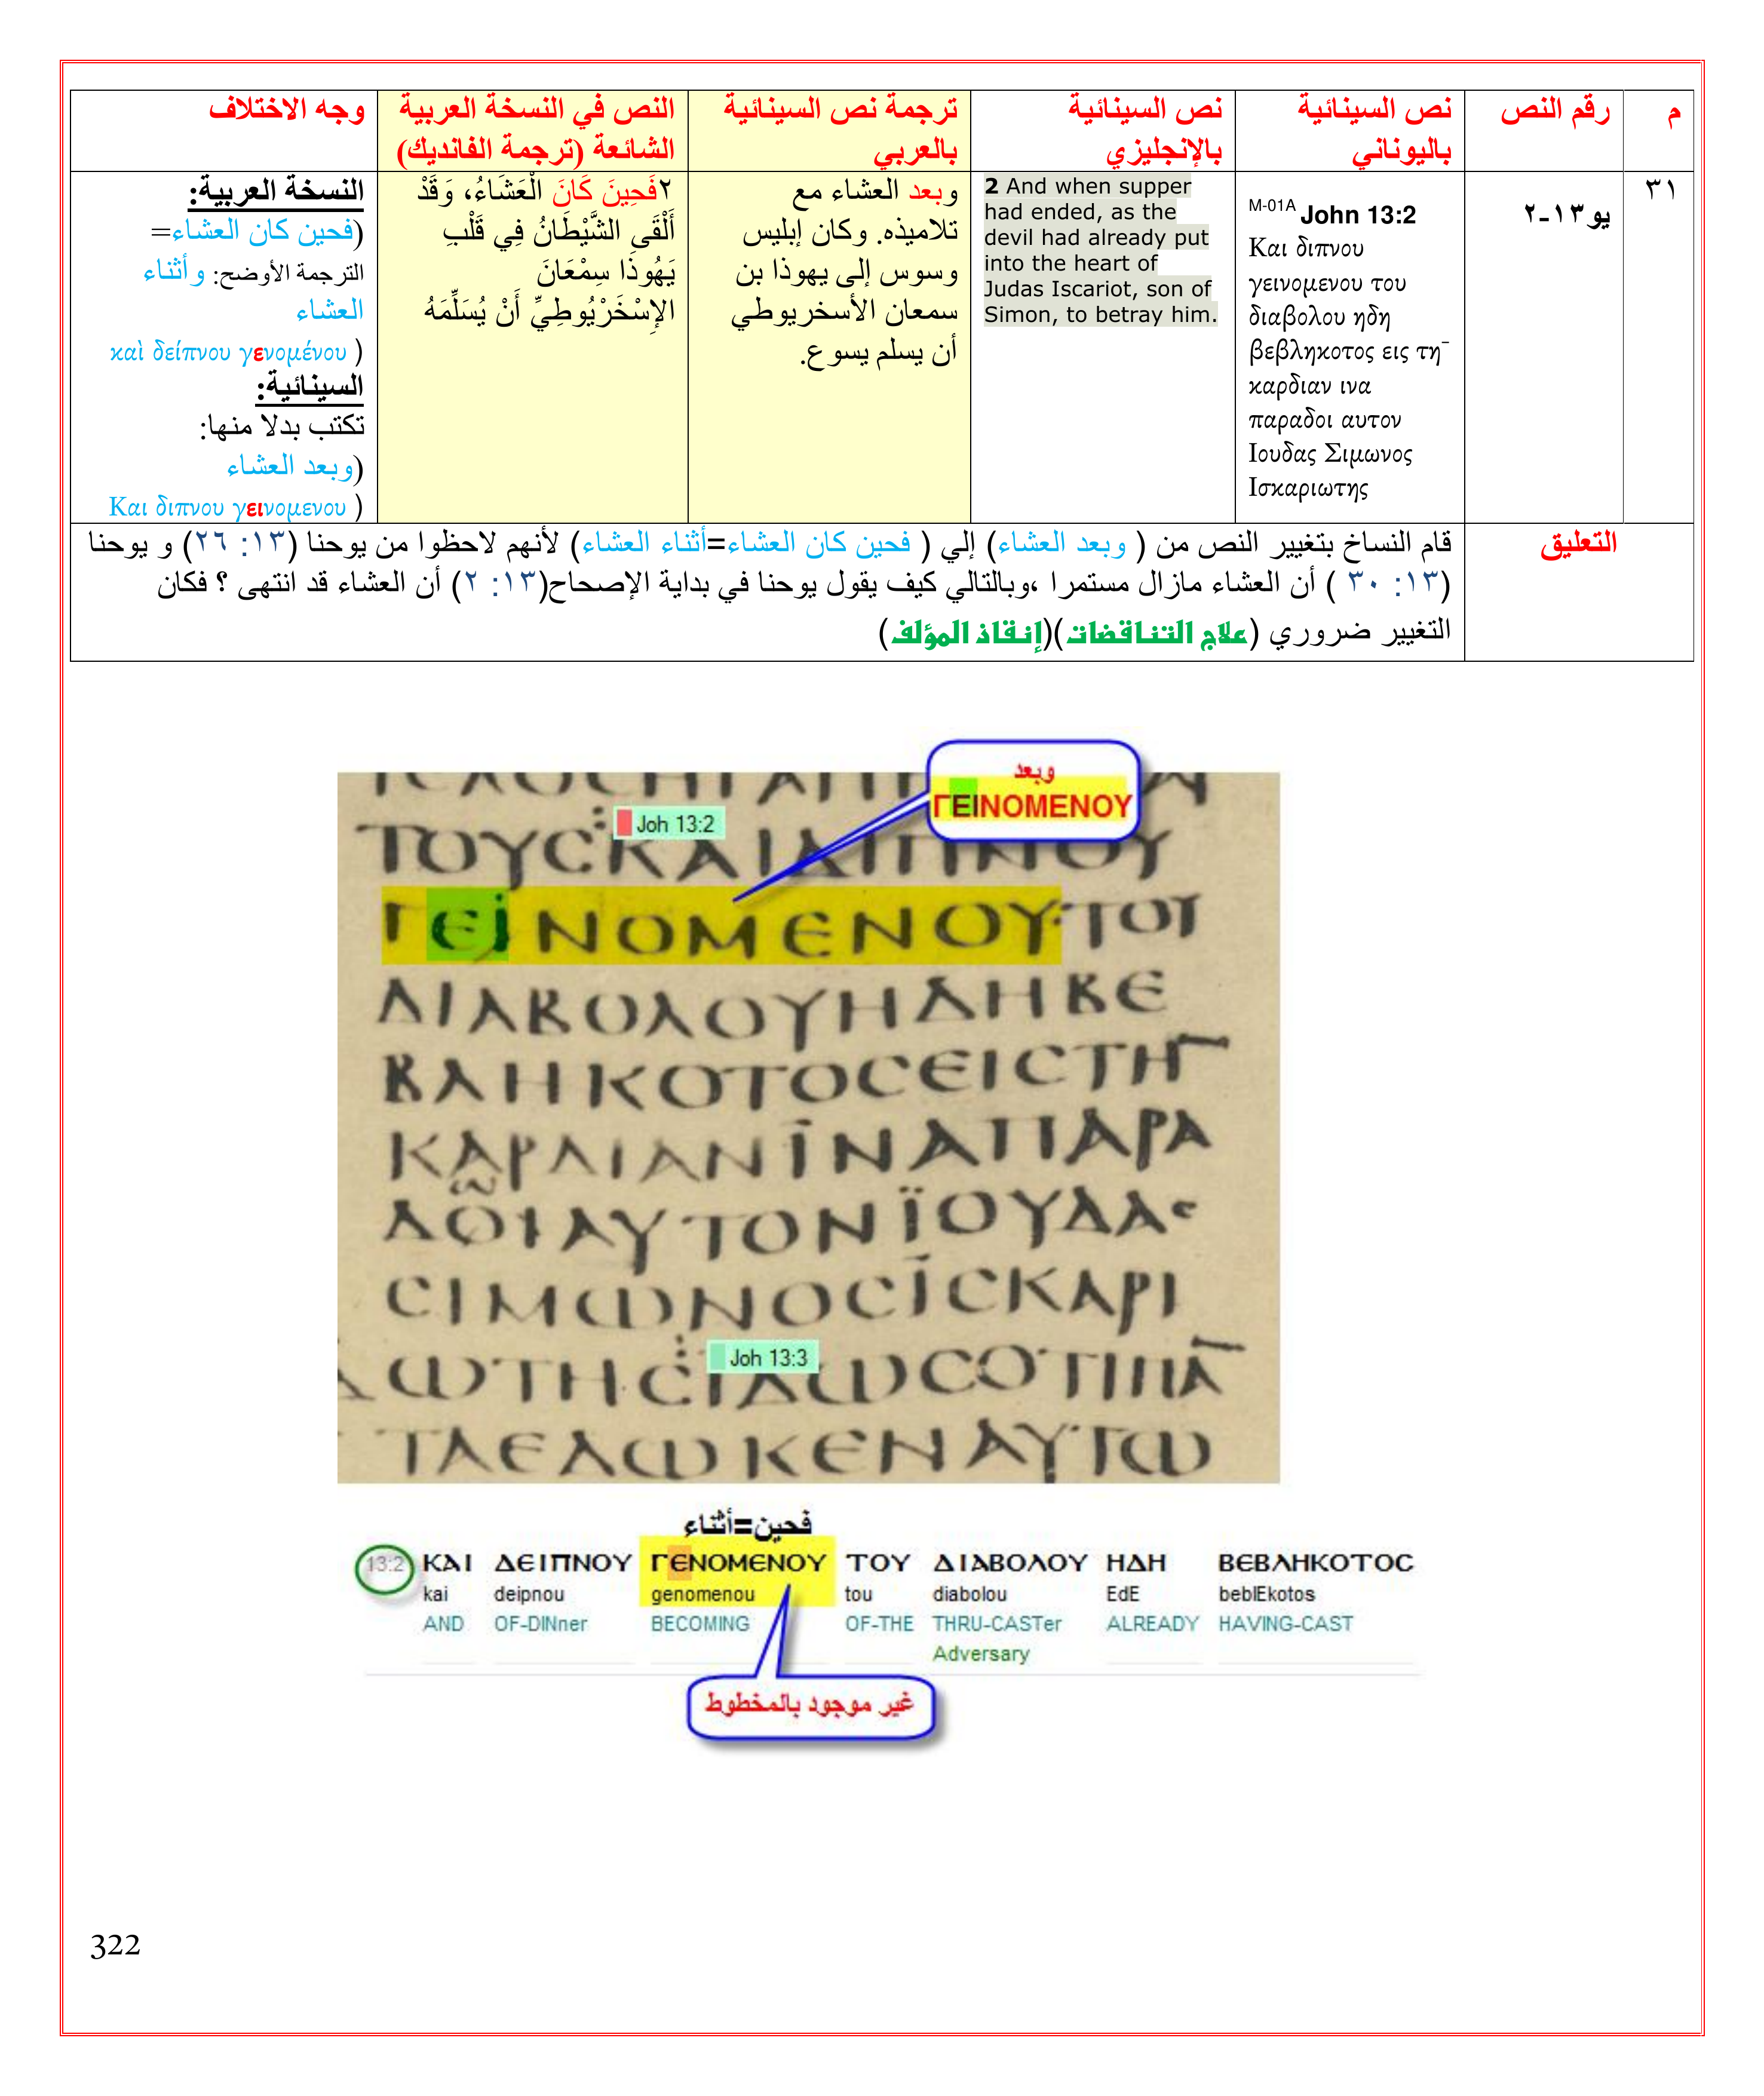 م
رقم النص
نص السينائية
باليوناني
نص السينائية
بالإنجليزي
ترجمة نص السينائية
بالعربي
النص في النسخة العربية
الشائعة (ترجمة الفانديك)
وجه الاختلاف
٣١
يو١٣-٢
M-01A John 13:2
Και διπνου
γεινομενου του
διαβολου ηδη
βεβληκοτος εις τη¯
καρδιαν ινα
παραδοι αυτον
Ιουδας Σιμωνος
Ισκαριωτης
2 And when supper
had ended, as the
devil had already put
into the heart of
Judas Iscariot, son of
Simon, to betray him.
وبعد العشاء مع
تلاميذه. وكان إبليس
وسوس إلى يهوذا بن
سمعان الأسخريوطي
أن يسلم يسوع.
٢فَحِينَ كَانَ الْعَشَاءُ، وَقَدْ
أَلْقَى الشَّيْطَانُ فِي قَلْبِ
يَهُوذَا سِمْعَانَ
الإِسْخَرْيُوطِيِّ أَنْ يُسَلِّمَهُ
النسخة العربية:
(فحين كان العشاء=
الترجمة الأوضح: وأثناء
العشاء
καὶ δείπνου γενομένου )
السينائية:
تكتب بدلا منها:
(وبعد العشاء
Και διπνου γεινομενου )
التعليق
قام النساخ بتغيير النص من ( وبعد العشاء) إلي ( فحين كان العشاء=أثناء العشاء) لأنهم لاحظوا من يوحنا (١٣: ٢٦) و يوحنا
(١٣: ٣٠ ) أن العشاء مازال مستمرا ،وبالتالي كيف يقول يوحنا في بداية الإصحاح(١٣: ٢) أن العشاء قد انتهى ؟ فكان
التغيير ضروري (علاج التناقضات)(إنقاذ المؤلف)
وبعد
ΓΕΙΝΟΜΕΝΟΥ
Joh 13:2
ΤΟΥϹΚΑΙΔΙΠΝΟΥ
ΓΕΙΝΟΜΕΝΟΥΤΟΥ
ΔΙΑΒΟΛΟΥΗΔΗΒΕ
ΒΛΗΚΟΤΟϹΕΙϹΤΗ¯
ΚΑΡΔΙΑΝΪΝΑΠΑΡΑ
ΔΟΙΑΥΤΟΝΪΟΥΔΑϹ
ϹΙΜΩΝΟϹΪϹΚΑΡΙ
Joh 13:3
ΩΤΗϹΪΔΩϹΟΤΙΠΑ¯
ΤΑΕΔΩΚΕΝΑΥΤΩ
فحين=أثناء
13:2 ΚΑΙ ΔΕΙΠΝΟΥ ΓΕΝΟΜΕΝΟΥ ΤΟΥ ΔΙΑΒΟΛΟΥ ΗΔΗ ΒΕΒΛΗΚΟΤΟϹ
kai deipnou genomenou tou diabolou EdE beblEkotos
AND OF-DINner BECOMING OF-THE THRU-CASTer ALREADY HAVING-CAST
Adversary
غير موجود بالمخطوط
322